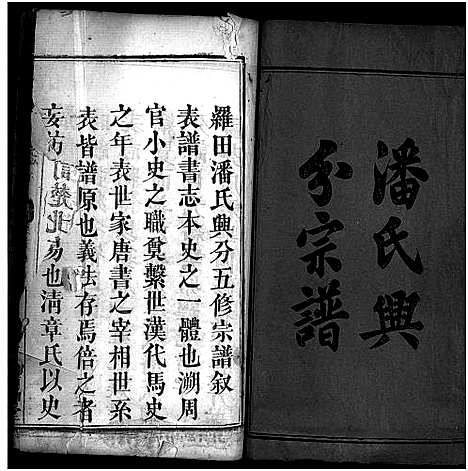 潘氏興
分宗譜
羅田潘氏興分五修宗譜叙
表譜書志本史之一體也溯周
官小史之職奠繫世漢代馬史
之年表世家唐書之宰相世系
表皆譜原也義法存焉倍之者
妄仿易也清章氏以史